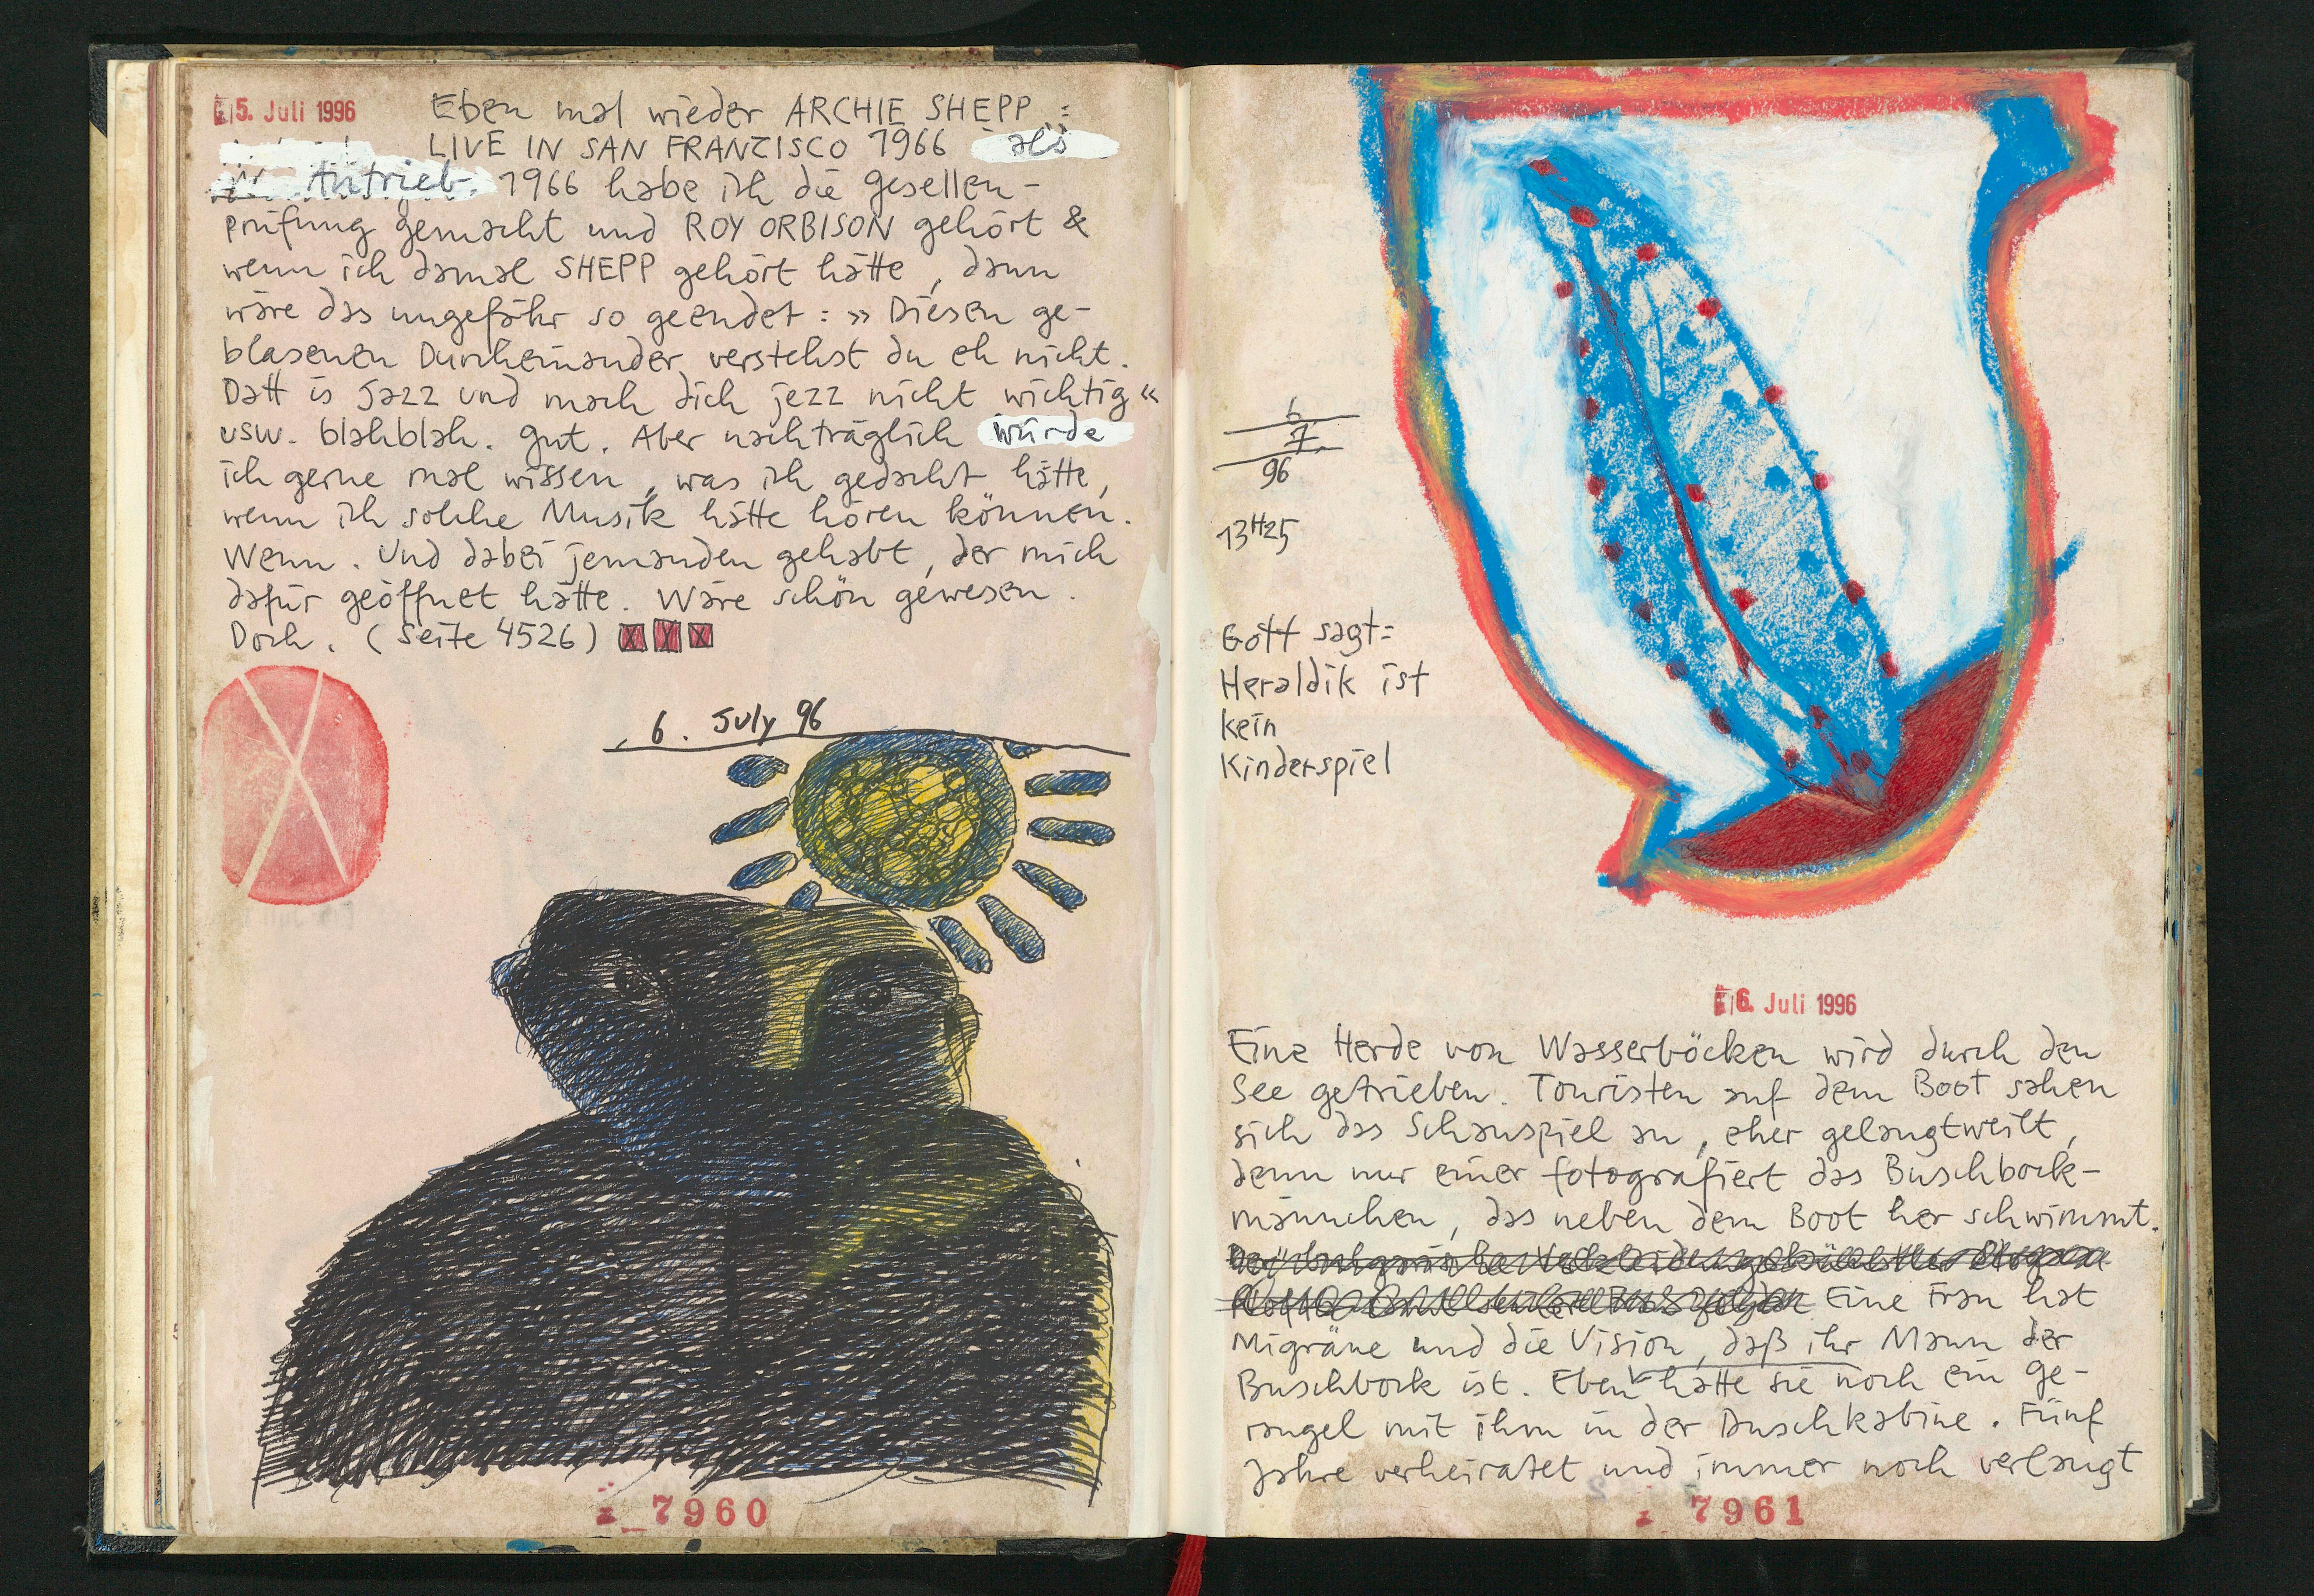 5. Juli 1996
Eben mal wieder ARCHIE SHEPP :
LIVE IN SAN FRANZISCO 1966 als
Antrieb. 1966 habe ich die Gesellen-
prüfung gemacht und ROY ORBISON gehört &
wenn ich damal SHEPP gehört hätte, dann
wäre das ungefähr so geendet: »Diesen ge-
blasenen Durcheinander verstehst du eh nicht.
Datt is Jazz und mach dich jezz nicht wichtig«
usw. blahblah. Gut. Aber nachträglich würde
ich gerne mal wissen, was ich gedacht hätte,
wenn ich solche Musik hätte hören können.
Wenn. Und dabei jemanden gehabt, der mich
dafür geöffnet hätte. Wäre schön gewesen.
Doch. (Seite 4526) X X X
6. July 96
7960
6
7.
96
13H25
Gott sagt:
Heraldik ist
kein
Kinderspiel
6. Juli 1996
Eine Herde von Wasserböcken wird durch den
See getrieben. Touristen auf dem Boot sahen
sich das Schauspiel an, eher gelangtweilt,
denn nur einer fotografiert das Buschbock-
männchen, das neben dem Boot her schwimmt.
Eine Frau hat
Migräne und die Vision, daß ihr Mann der
Buschbock ist. Eben hatte sie noch ein Ge-
rangel mit ihm in der Duschkabine. Fünf
Jahre verheiratet und immer noch verlangt
7961